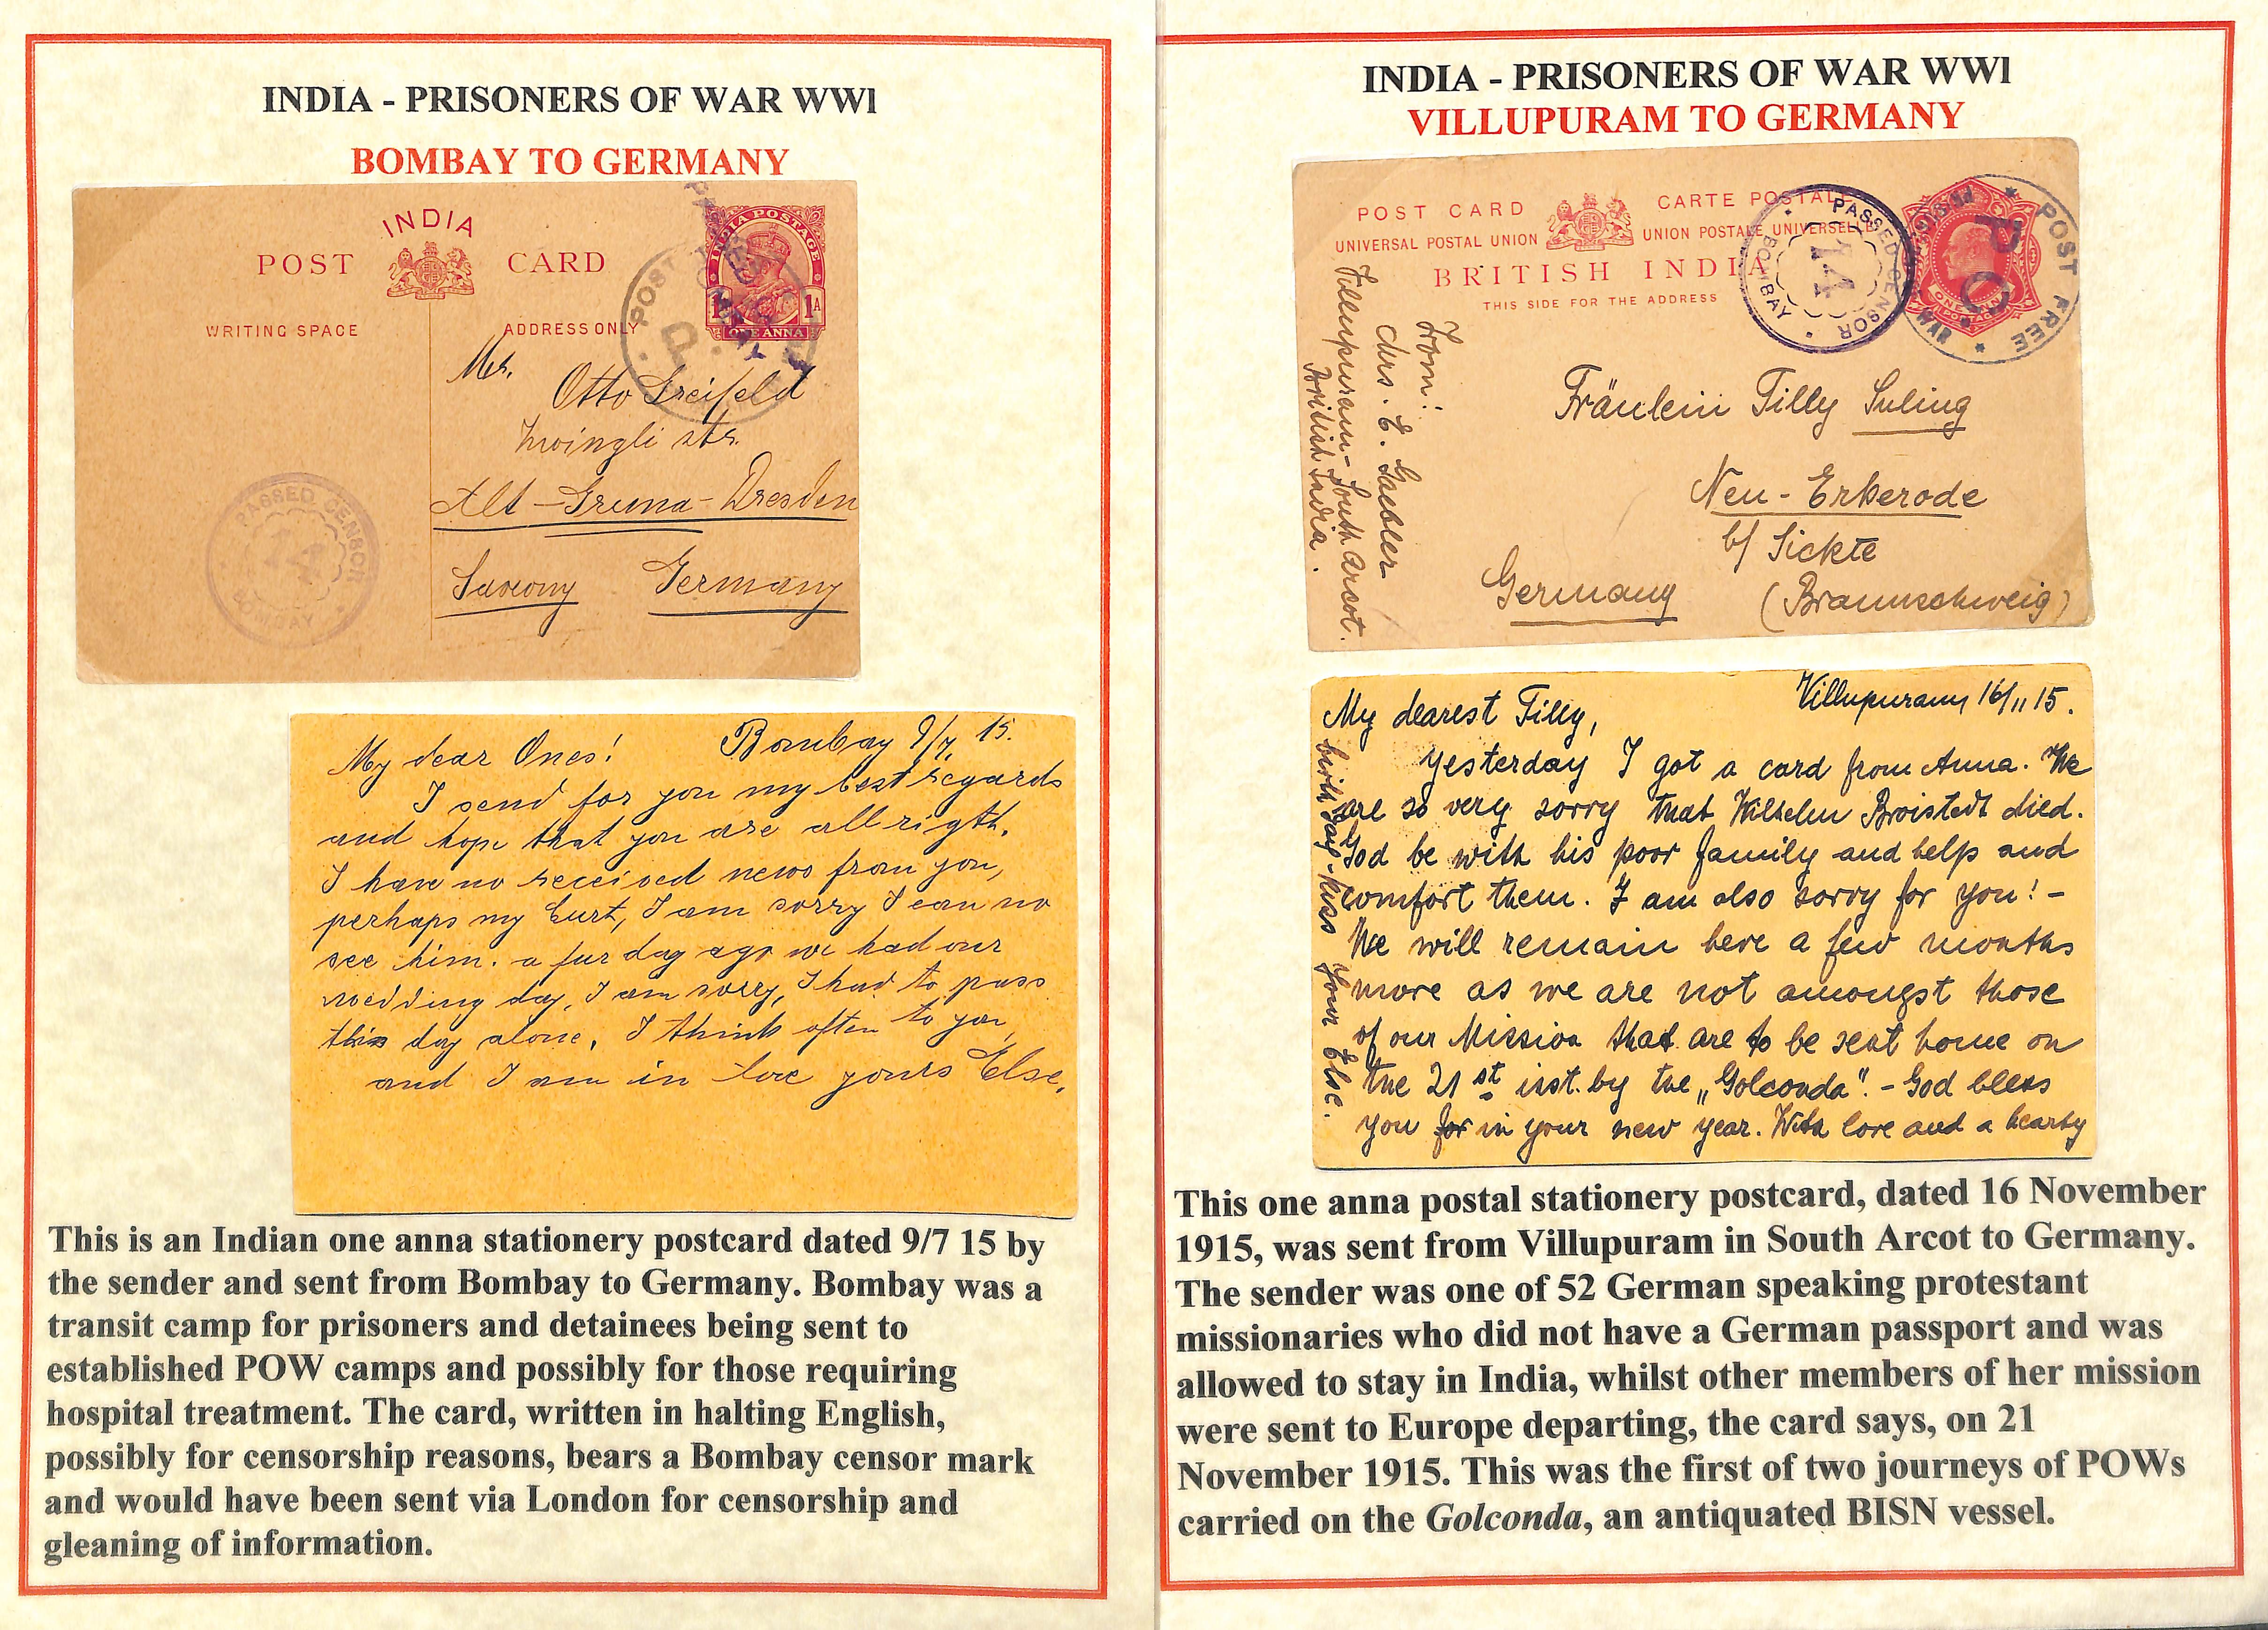 INDIA - PRISONERS OF WAR WW1
BOMBAY TO GERMANY
INDIA
POST CARD
WRITING SPACE
ADDRESS ONLY
INDIA POSTAGE
1A
ONE ANNA
POST
P.
PASSED CENSOR
BOMBAY
Mr.
Otto Greifeld
Zwingli str.
Alt-Gruna-Dresden
Saxony Germany
My dear Ones! Bombay 9/7 15.
I send for you my best regards
and hope that you are all rigth.
I have no received news from you,
perhaps my Curt, I am sorry I can no
see him. a fur day ago we had our
wedding day, I am sorry, I had to pass
this day alone. I think often to you
and I am in love yours Else.
This is an Indian one anna stationery postcard dated 9/7 15 by
the sender and sent from Bombay to Germany. Bombay was a
transit camp for prisoners and detainees being sent to
established POW camps and possibly for those requiring
hospital treatment. The card, written in halting English,
possibly for censorship reasons, bears a Bombay censor mark
and would have been sent via London for censorship and
gleaning of information.
INDIA - PRISONERS OF WAR WW1
VILLUPURAM TO GERMANY
POST CARD CARTE POSTALE
UNIVERSAL POSTAL UNION UNION POSTALE UNIVERSELLE
BRITISH INDIA
THIS SIDE FOR THE ADDRESS
PASSED CENSOR
44
BOMBAY
POST FREE
P C
WAR
ONE ANNA
From:
Chrs. E. Gaebler
Villupuram-South Arcot.
British India.
Fräulein Tilly Suling
Neu-Erkerode
b/ Sickte
(Braunschweig)
Germany
My dearest Tilly, Villupuram 16/11 15.
Yesterday I got a card from Anna. We
are so very sorry that Wilhelm Broistedt died.
God be with his poor family and help and
comfort them. I am also sorry for you! -
We will remain here a few months
more as we are not amongst those
of our Mission that are to be sent home on
the 21st inst. by the „Golconda". - God bless
you for in your new year. With love and a hearty
birthday-kiss Your Else.
This one anna postal stationery postcard, dated 16 November
1915, was sent from Villupuram in South Arcot to Germany.
The sender was one of 52 German speaking protestant
missionaries who did not have a German passport and was
allowed to stay in India, whilst other members of her mission
were sent to Europe departing, the card says, on 21
November 1915. This was the first of two journeys of POWs
carried on the Golconda, an antiquated BISN vessel.